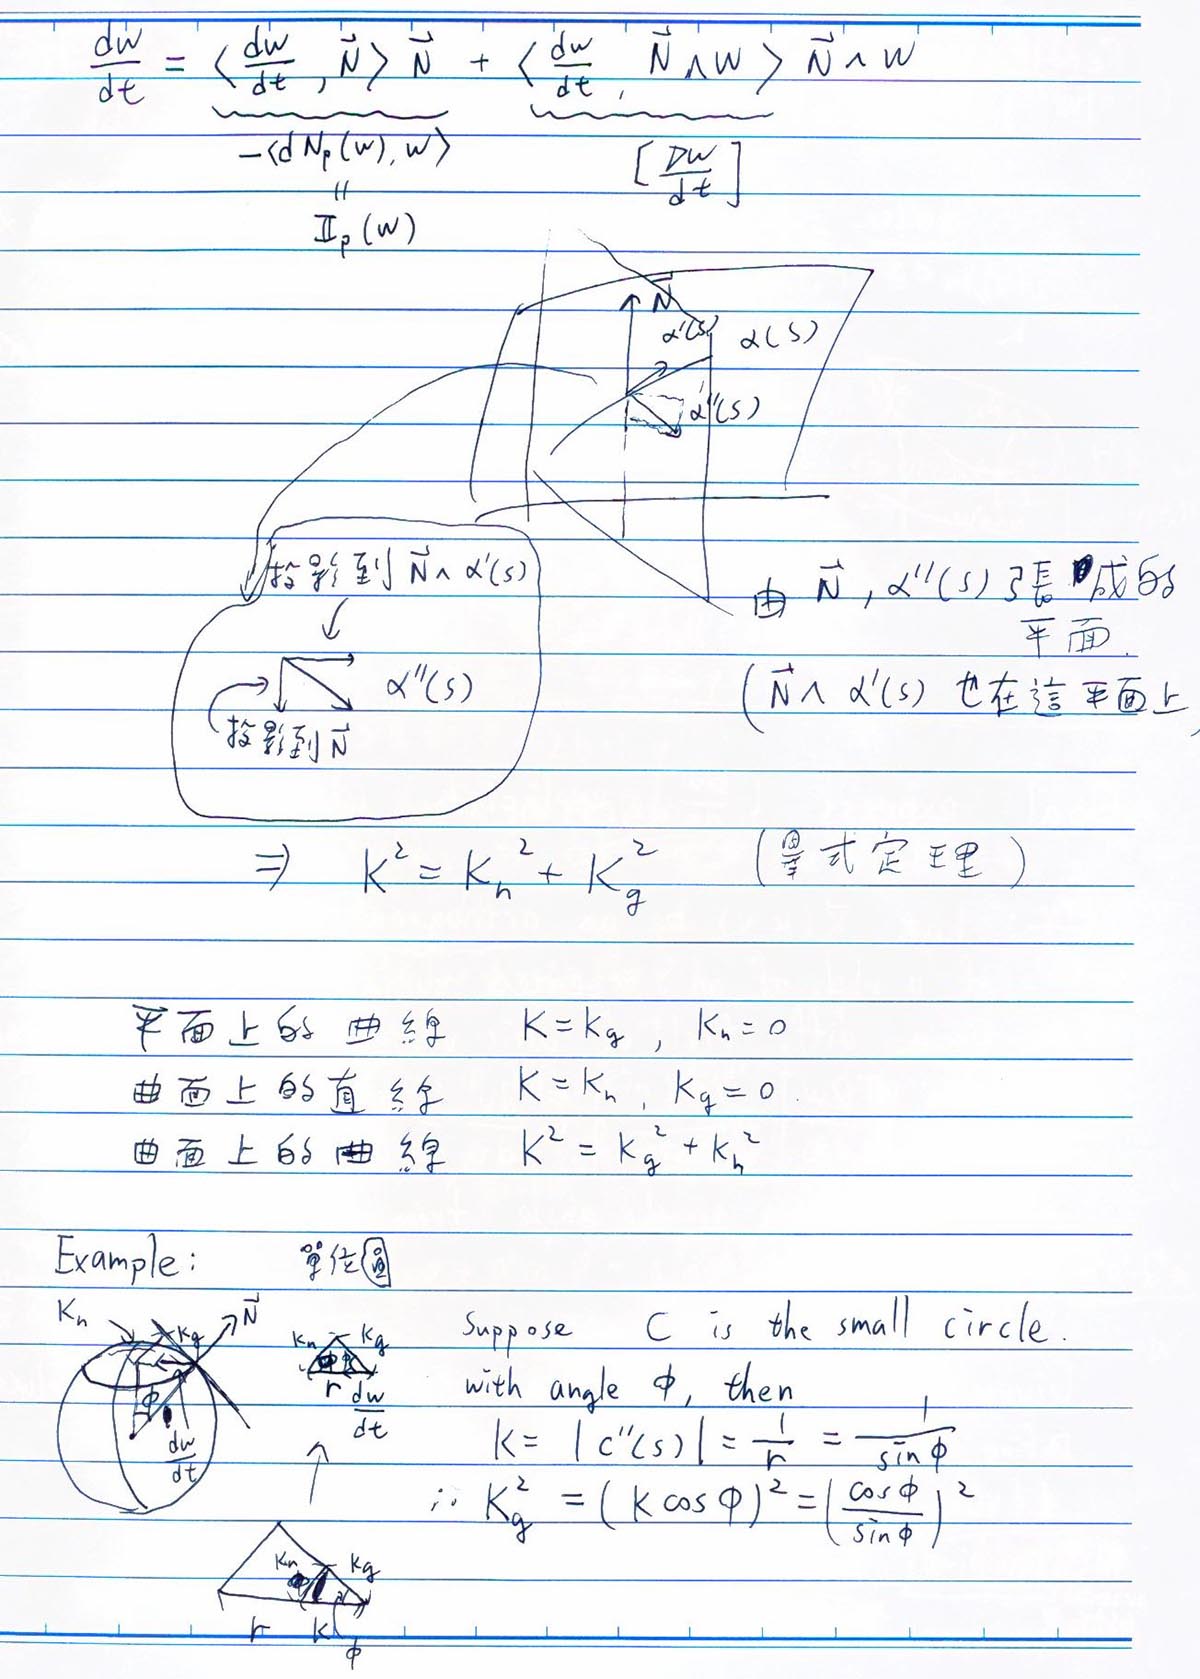 dw/dt = ⟨dw/dt, N⃗⟩ N⃗ + ⟨dw/dt, N⃗∧w⟩ N⃗∧w
-⟨dNp(w), w⟩ [Dw/dt]
=
IIp(w)
N⃗
α'(s) α(s)
α''(s)
投影到 N⃗∧α'(s)
由 N⃗, α''(s) 張成的
平面.
α''(s)
(N⃗∧α'(s) 也在這平面上,
投影到 N⃗
⇒ K² = Kn² + Kg² (畢式定理)
平面上的曲線 K = Kg, Kn = 0
曲面上的直線 K = Kn, Kg = 0.
曲面上的曲線 K² = Kg² + Kn²
Example: 單位圓
Kn Kg N⃗
φ
dw/dt
Kn Kg
r dw/dt
Suppose C is the small circle.
with angle φ, then
K = |c''(s)| = 1/r = 1/sinφ
∴ Kg² = (K cosφ)² = (cosφ/sinφ)²
Kn Kg
r K φ